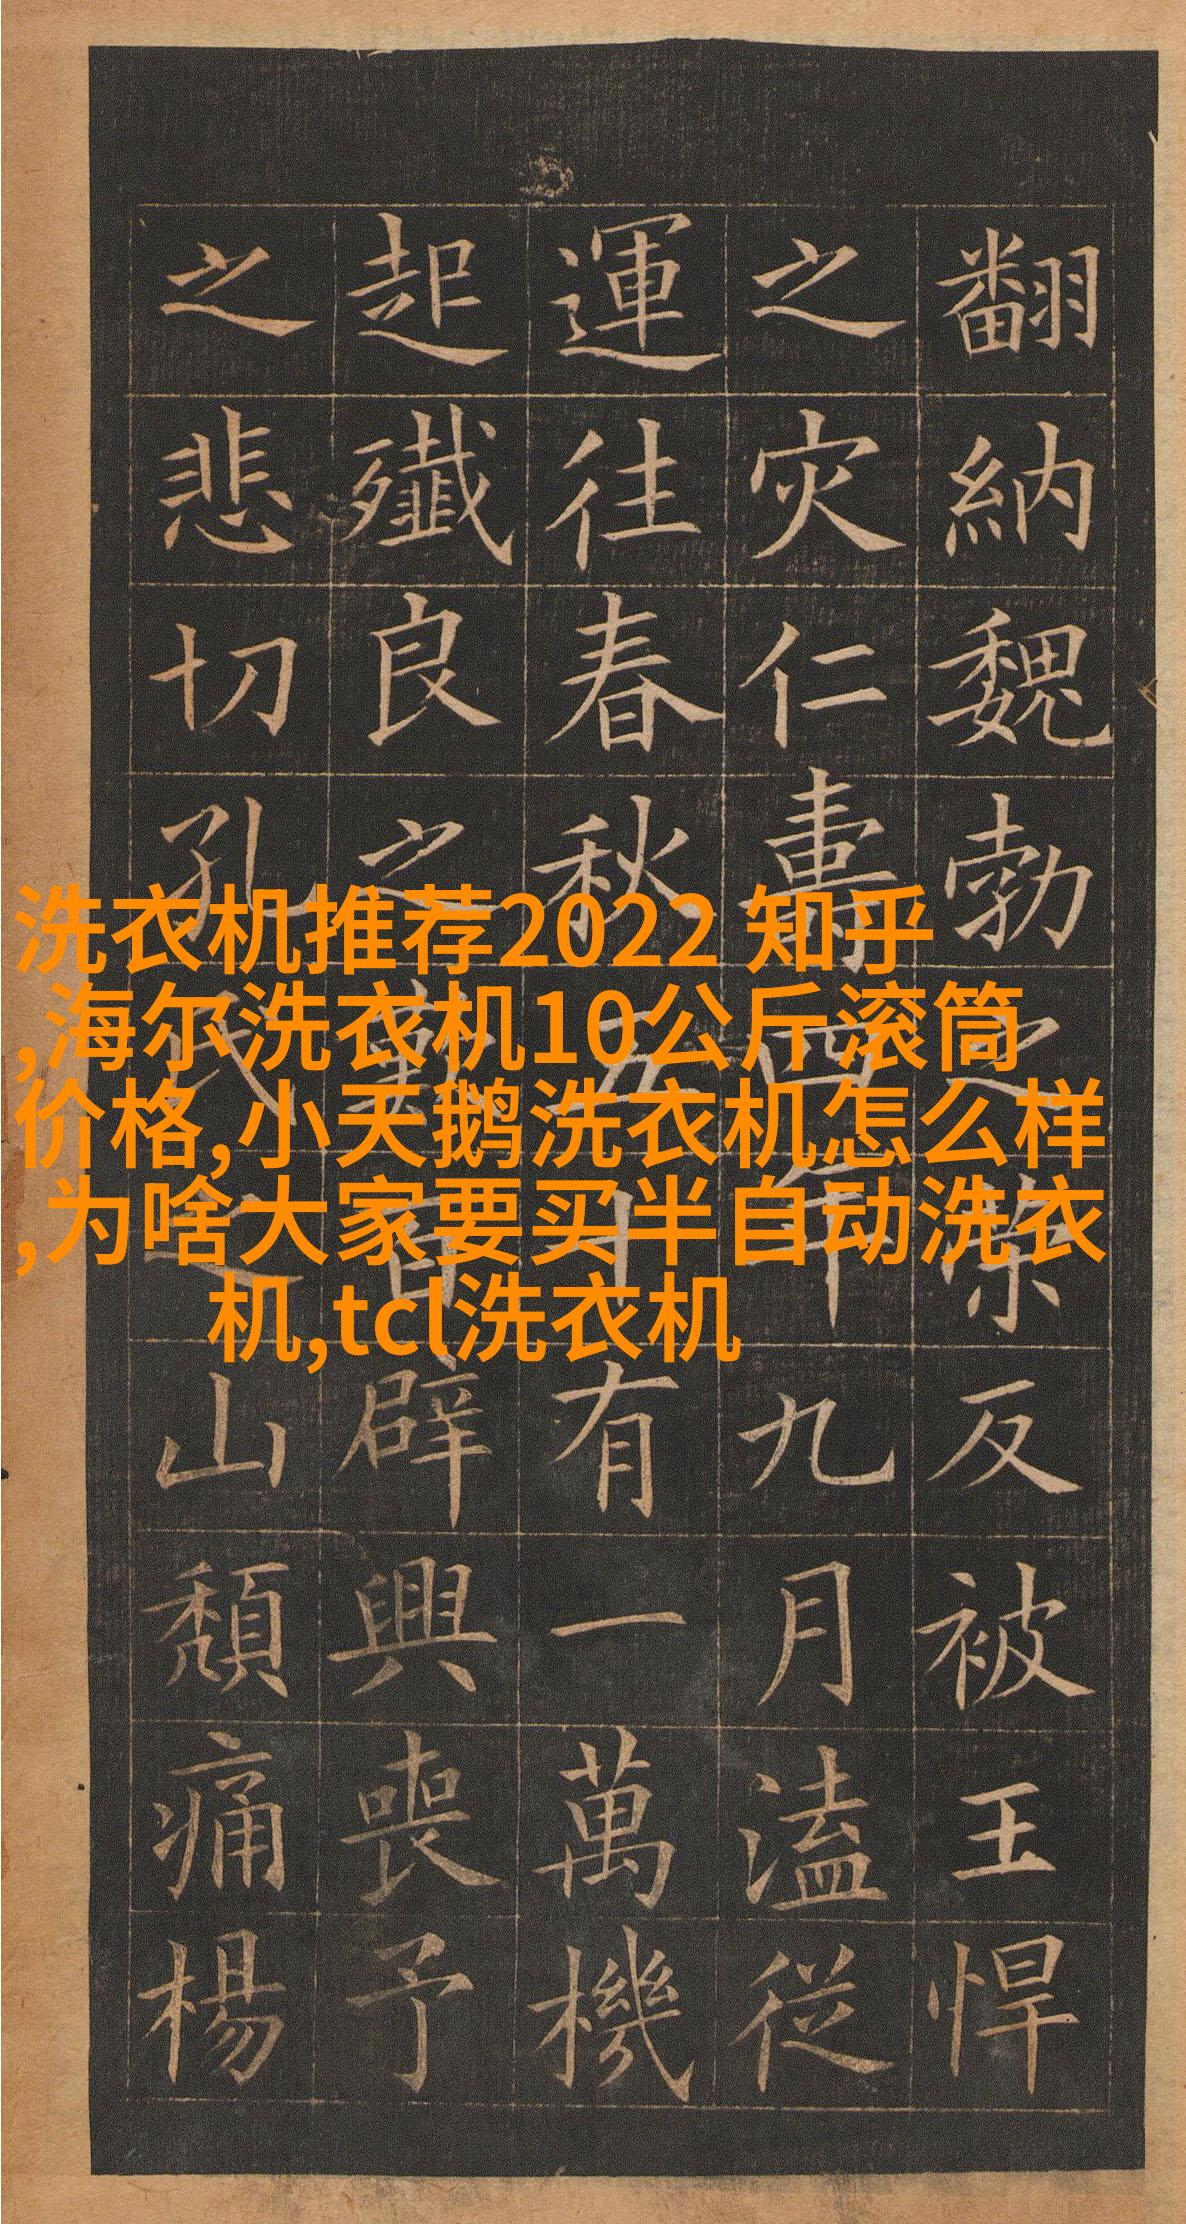 洗衣机推荐2022 知乎
,海尔洗衣机10公斤滚筒
价格,小天鹅洗衣机怎么样
,为啥大家要买半自动洗衣
机,tcl洗衣机
翻納魏勃之反被王悍
之灾仁壽四年九月溘從
運往春秋五十有一萬機
起殲良之歎百辟興喪予
之悲切孔之山頹痛楊